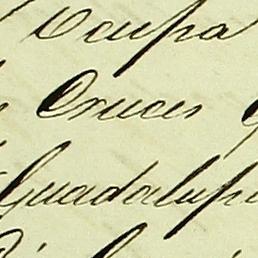 Ocupa
Cruces
Guadalupe